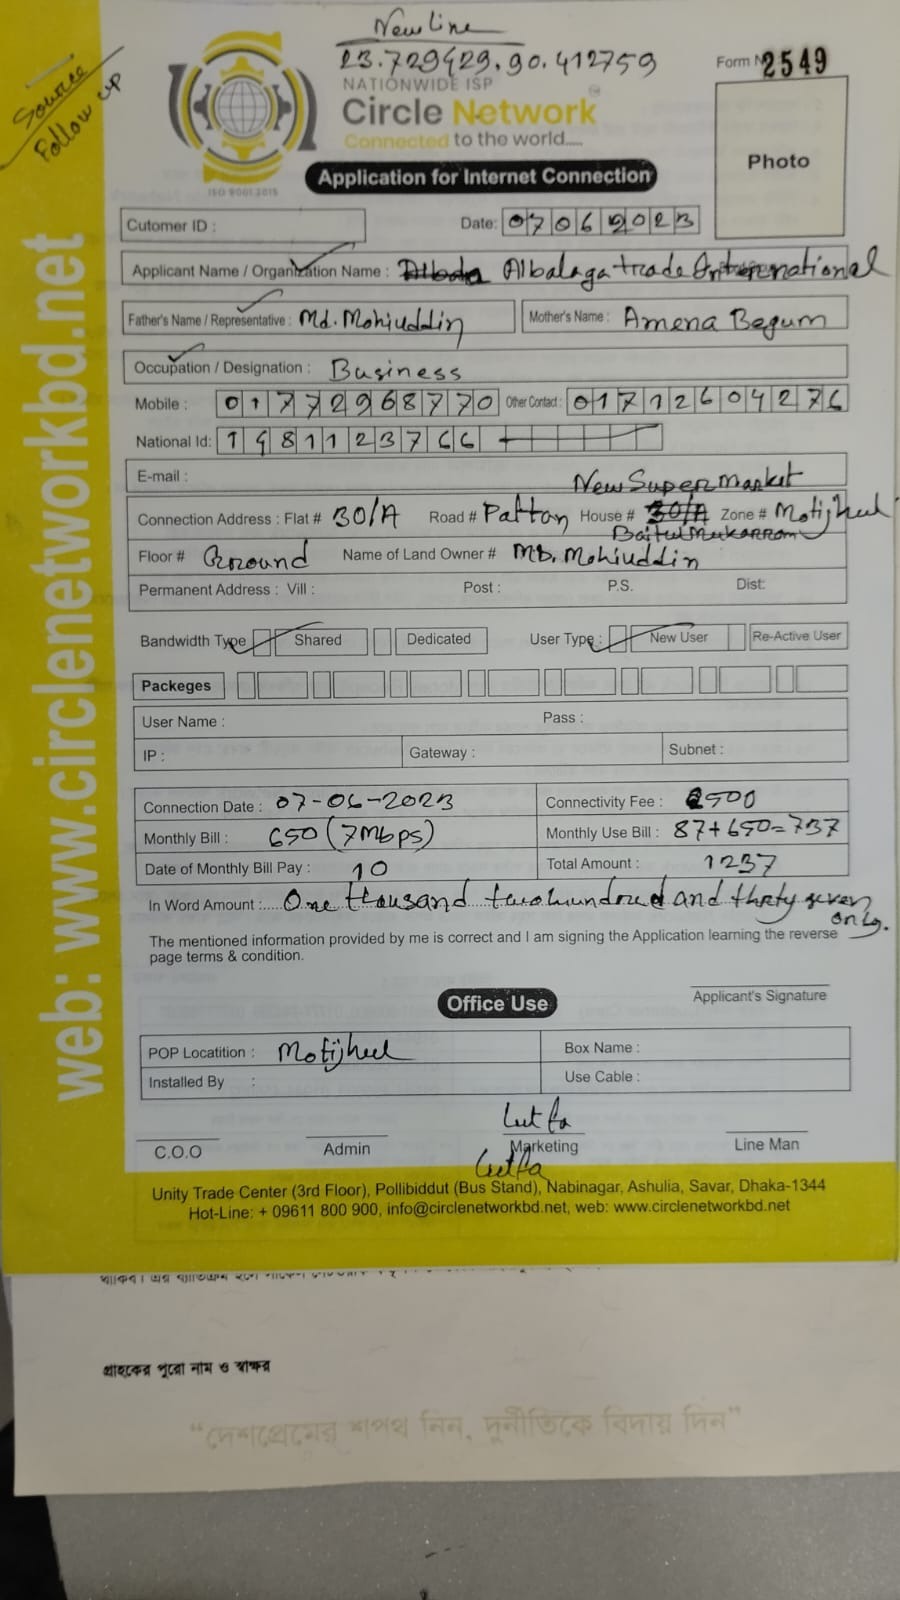 New Line
23.729429.90.412759
Source
Follow up
NATIONWIDE ISP
Circle Network
Connected to the world.....
ISO 9001:2015
Form N 2549
Photo
Application for Internet Connection
Cutomer ID :
Date: 07062023
Applicant Name / Organization Name : Albalagatrade International
Father's Name / Representative : Md. Mohiuddin
Mother's Name : Amena Begum
Occupation / Designation : Business
Mobile : 01772968770 Other Contact : 01712604276
National Id: 1981123766
E-mail :
New Super Market
Connection Address : Flat # 30/A Road # Paltan House # 30/A Zone # Motijheel
Baitul Mukarrom
Floor # Ground Name of Land Owner # MD. Mohiuddin
Permanent Address : Vill : Post : P.S. Dist:
Bandwidth Type Shared Dedicated User Type : New User Re-Active User
Packeges
User Name : Pass :
IP : Gateway : Subnet :
Connection Date : 07-06-2023 Connectivity Fee : 500
Monthly Bill : 650 (7Mbps) Monthly Use Bill : 87+650=737
Date of Monthly Bill Pay : 10 Total Amount : 1237
In Word Amount :..... One thousand two hundred and thirty seven only.
The mentioned information provided by me is correct and I am signing the Application learning the reverse
page terms & condition.
Applicant's Signature
Office Use
POP Locatition : Motijheel Box Name :
Installed By : Use Cable :
Lutfa
C.O.O Admin Marketing Line Man
Lutfa
Unity Trade Center (3rd Floor), Pollibiddut (Bus Stand), Nabinagar, Ashulia, Savar, Dhaka-1344
Hot-Line: + 09611 800 900, info@circlenetworkbd.net, web: www.circlenetworkbd.net
web: www.circlenetworkbd.net
গ্রাহকের পুরো নাম ও স্বাক্ষর
“দেশপ্রেমের শপথ নিন, দুর্নীতিকে বিদায় দিন”